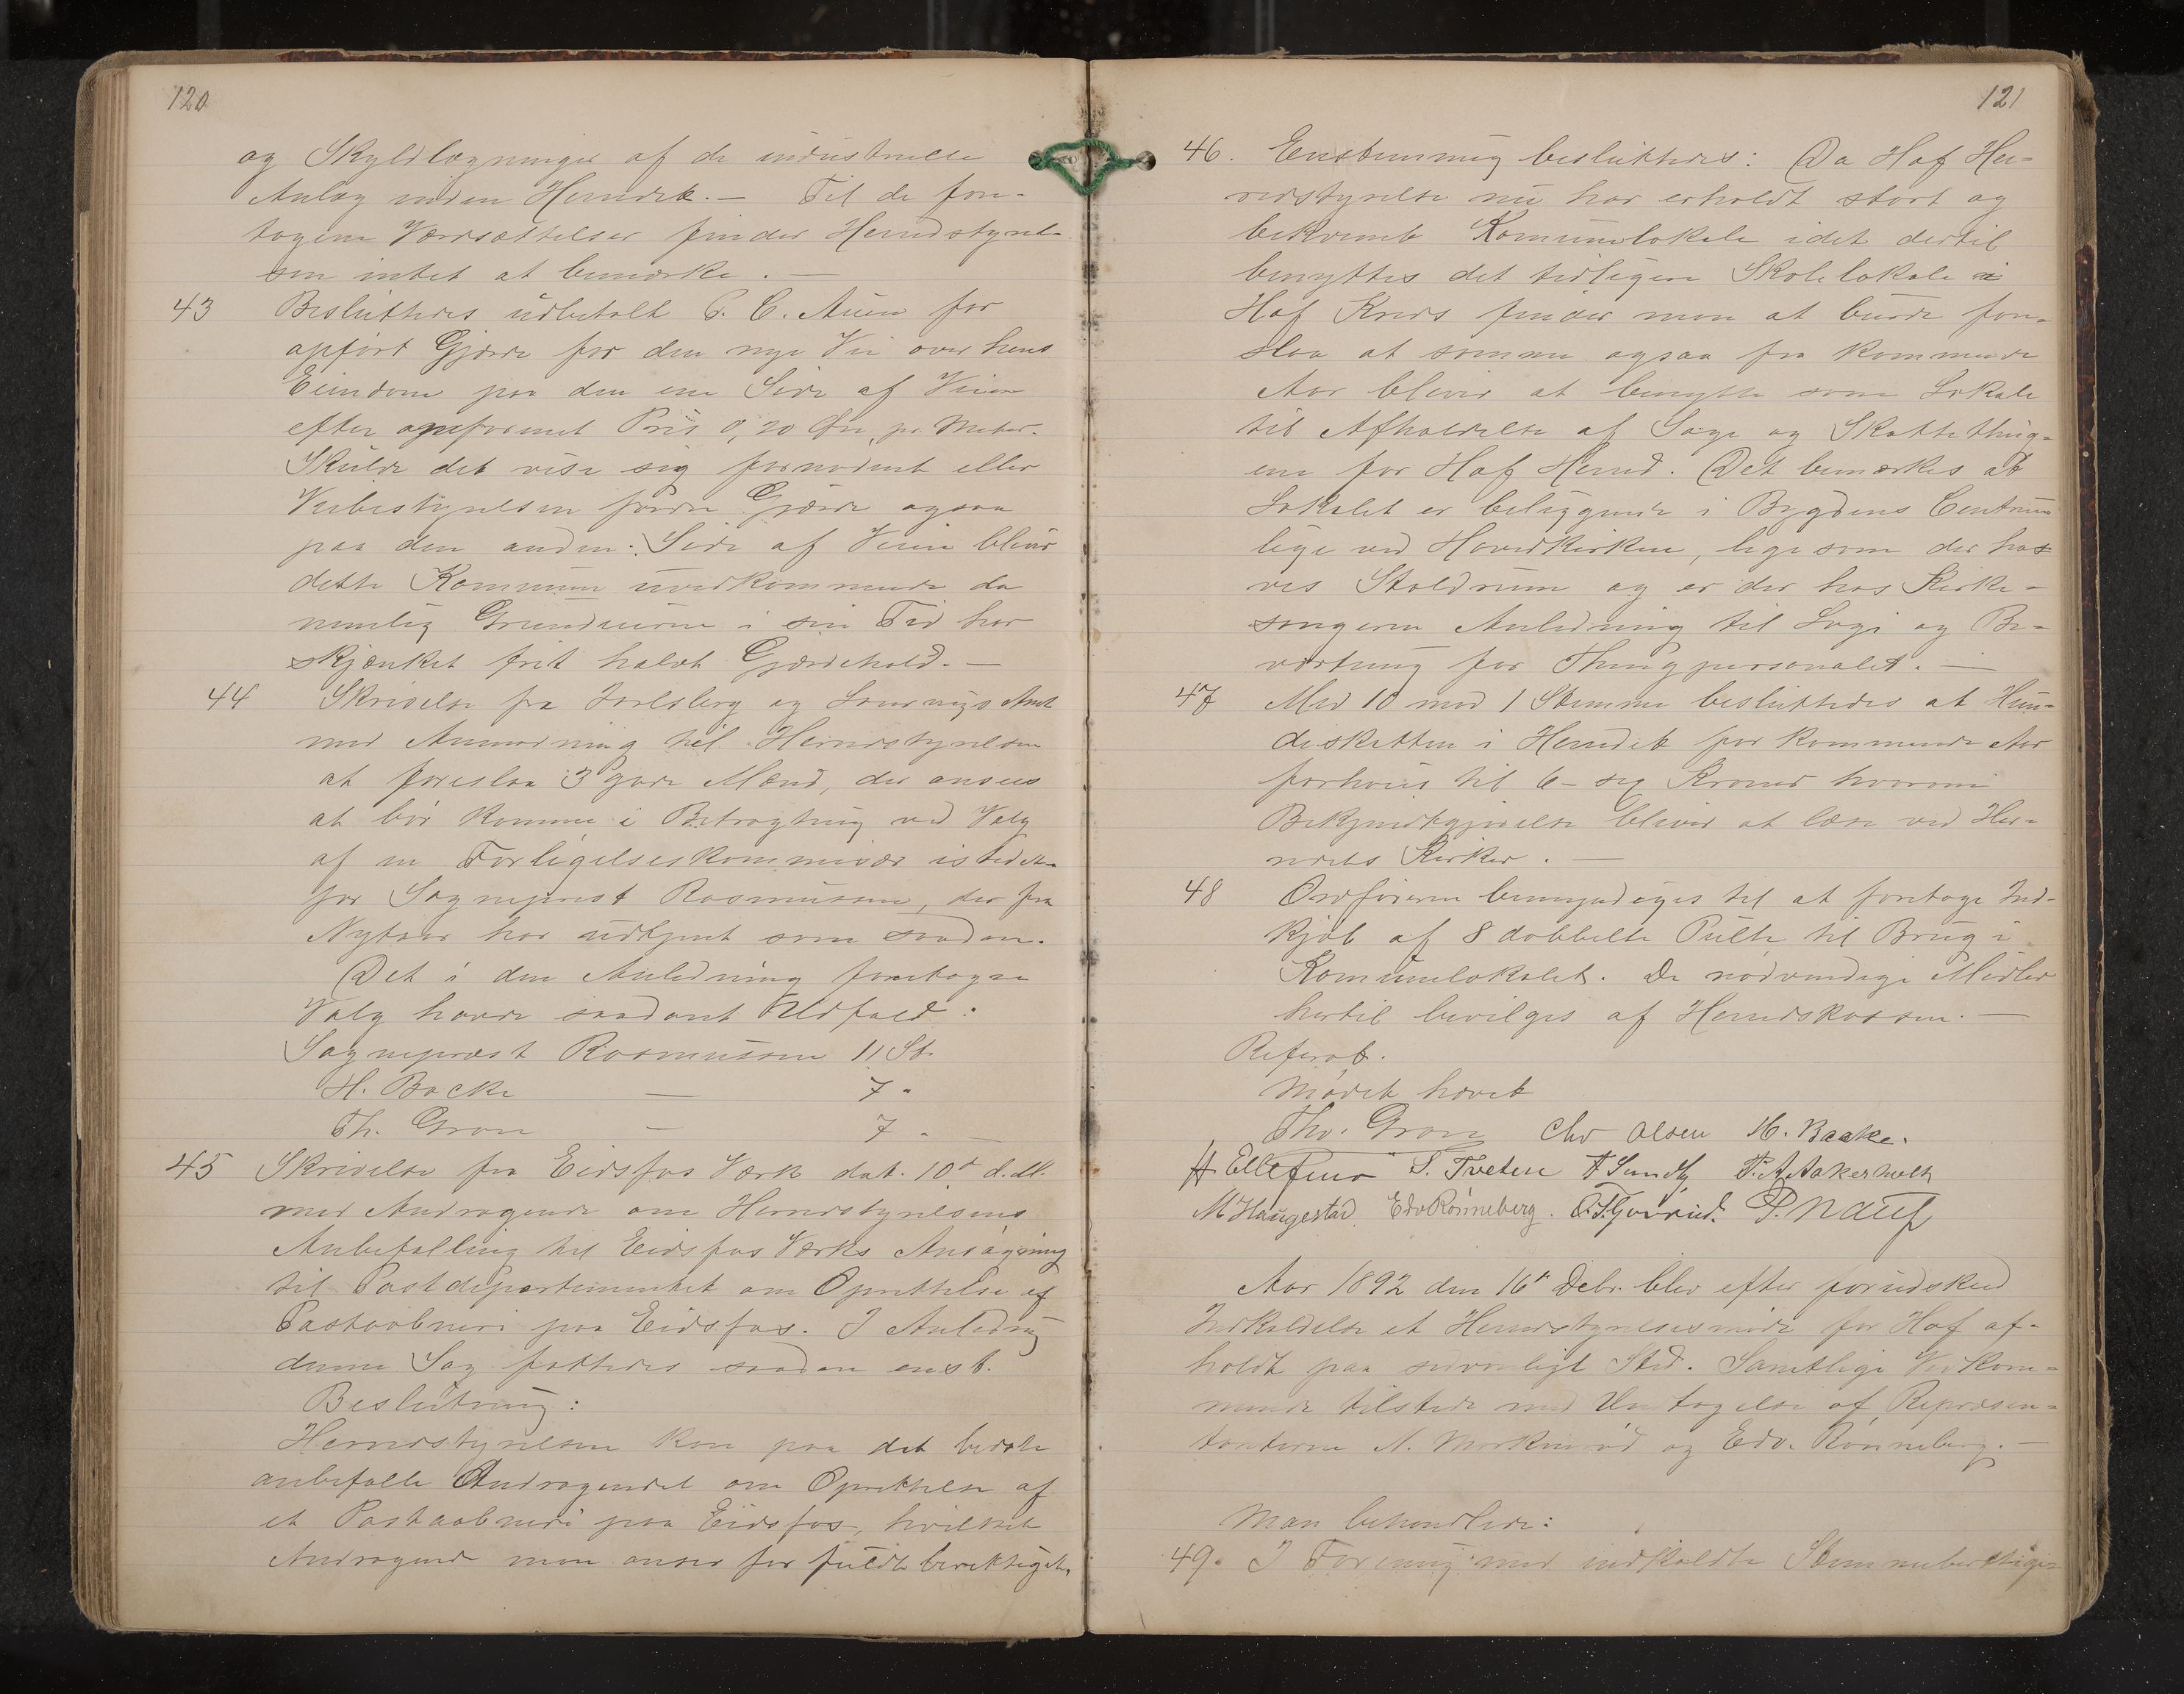 120
og Skyldlægninger af de industrielle
Anlæg inden Herredet. — Til de fore-
tagene Værdsættelser finder Herredstyrel-
sen intet at bemærke. —
43 Besluttedes udbetalt C. Auen for
opført Gjærde for den nye Vei over hans
Eiendom paa den ene Side af Veien
efter Pris 0,20 Øre pr. Meter.
Skulde det vise sig fornødent eller
Veibestyrelsen fordre Gjærde ogsaa
paa den anden Side af Veien bliver
dette Kommunen uvedkommende da
nemlig Grundeierne i sin Tid har
skjænket frit halvt Gjærdehold. —
44 Skrivelse fra Jarlsberg og Laurvigs Amt
med Anmodning til Herredstyrelsen
at foreslaa 3 gode Mænd, der ansees
at bør komme i Betragtning ved Valg
af en Forligelseskommissær istedet-
for Sognepræst Rasmussen, der fra
Nytaar har udtjent som saadan.
Det i den Anledning foretagne
Valg havde saadant Udfald:
Sognepræst Rasmussen 11 St.
H. Backe — 7 "
Th. Gron — 7 " —
45 Skrivelse fra Eidsfos Værk dat. 10de d.M.
med Andragende om Herredstyrelsens
Anbefalling til Eidsfos Værks Ansøgning
til Postdepartementet om Oprettelse af
Postaabneri paa Eidsfos. I Anledning
denne Sag fattedes saadan enst.
Beslutning:
Herredstyrelsen kan paa det bedste
anbefalle Andragendet om Oprettelse af
et Postaabneri paa Eidsfos, hvilket
Andragende man anser for fuldt berettiget.
121
46. Enstemmig besluttedes: Da Hof Her-
redstyrelse nu har erholdt stort og
bekvemt Komunelokale idet dertil
benyttes det tidligere Skolelokale i
Hof Kreds finder man at burde fore-
slaa at samme ogsaa fra kommende
Aar bliver at benytte som Lokale
til Afholdelse af Sage og Skattething-
ene for Hof Herred. Det bemærkes at
Lokalet er beliggende i Bygdens Centrum
lige ved Hovedkirken, ligesom der ha-
ves Staldrum og er der hos Kirke-
sangeren Anledning til Logi og Be-
værtning for Thingpersonalet. —
47 Med 10 mod 1 Stemme besluttedes at Hun-
deskatten i Herredet for kommende Aar
forhøies til 6 - sex Kroner hvorom
Bekjendtgjørelse bliver at læse ved Her-
redets Kirker. —
48 Ordføreren bemyndiges til at foretage Ind-
kjøb af 8 dobbelte Pulte til Brug i
Komunelokalet. De nødvendige Midler
hertil bevilges af Herredskassen. —
Referat.
Mødet hævet
Tho. Gron Chr Olsen H. Backe.
H. Ellefsen S. Tveten A Sundby P. A. Aakerholt
M Haugestad Edv Rønneberg. P. Nauf
Aar 1892 den 16de Debr. blev efter forudskeed
Indkaldelse et Herredstyrelsesmøde for Hof af-
holdt paa sedvanligt Sted. Samtlige Vedkom-
mende tilstede med Undtagelse af Repræsen-
tanterne N. Morkenrød og Edv. Rønneberg. —
Man behandlede:
49. I Forening med indkaldte Stemmeberettige-